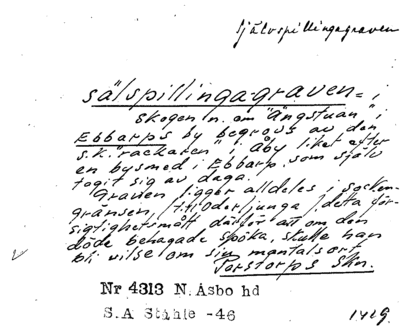 Självspillingagraven
sälspillingagraven = i
skogen n. om "Ängstuan" i
Ebbarps by begrovs av den
s.k. "rackaren" i Åby liket efter
en bysmed i Ebbarp, som själv
togit sig av daga.
Graven ligger alldeles i socken-
gränsen, t. Oderljunga, detta för-
sigtighetsmått därför att om den
döde behagade spöka, skulle han
bli vilse om sin mantalsort
Perstorps Skn.
Nr 4313 N. Åsbo hd
S.A Ståhle -46